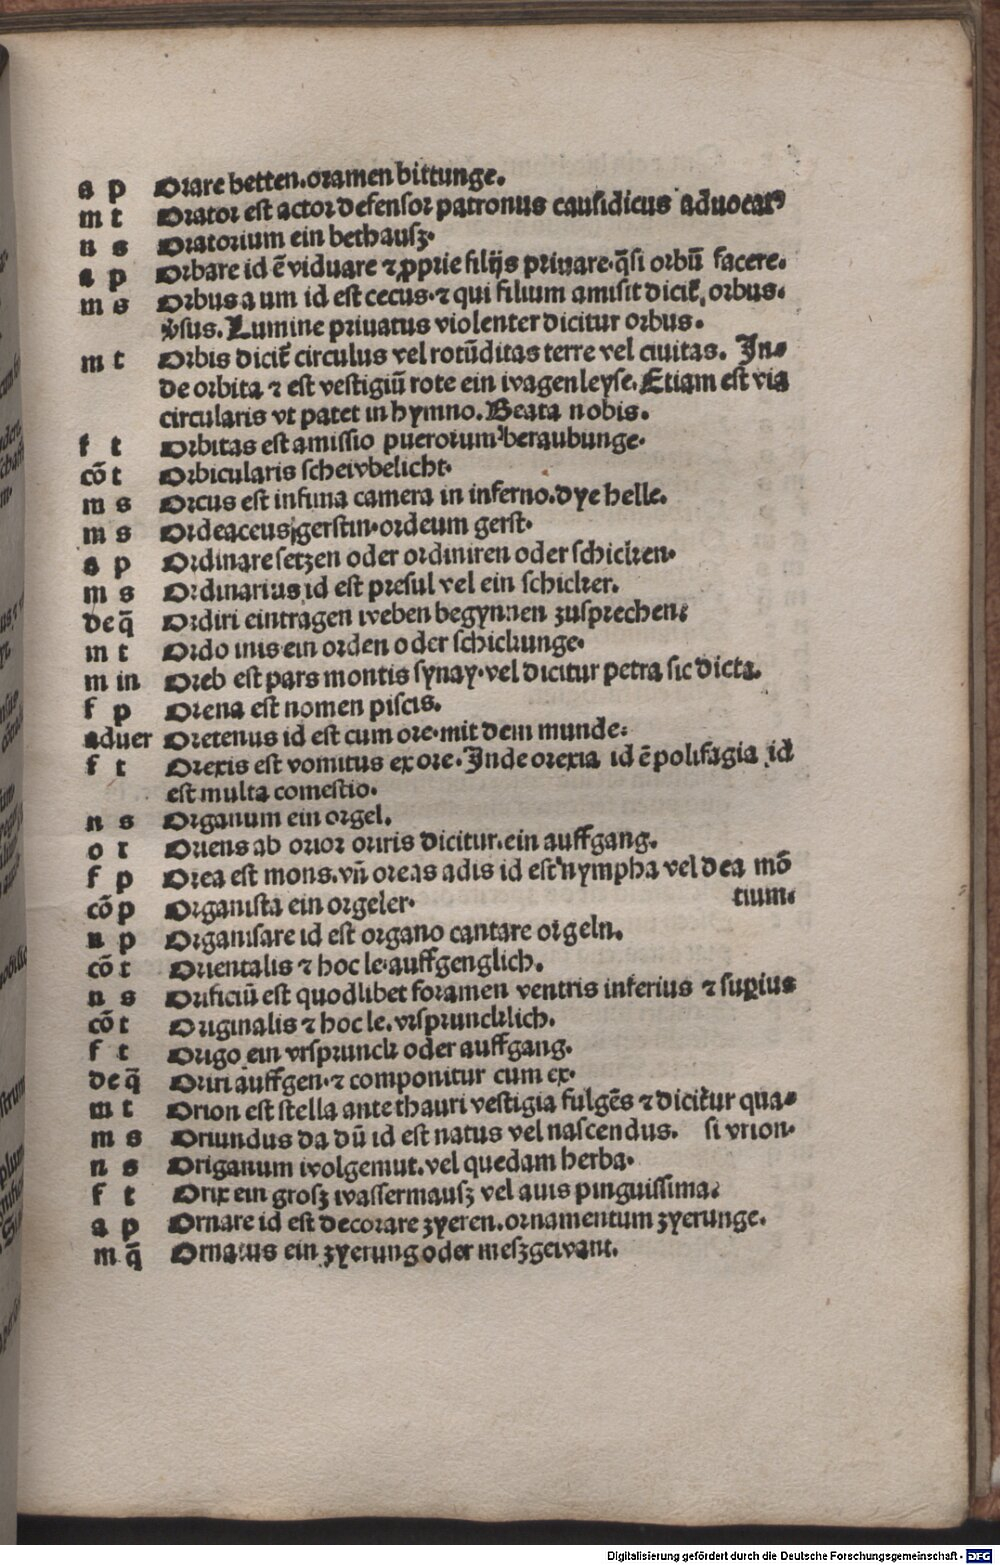 a p Orare betten. oramen bittunge.
m t Orator est actor defensor patronus causidicus aduocatꝰ
n s Oratorium ein bethausz.
a p Orbare id ē viduare ⁊ ꝓprie filijs priuare. q̄si orbū facere.
m s Orbus a um id est cecus. ⁊ qui filium amisit dicit̄, orbus.
Lumine priuatus violenter dicitur orbus.
m t Orbis dicit̄ circulus vel rotūditas terre vel ciuitas. In⸗
de orbita ⁊ est vestigiū rote ein wagenleyse. Etiam est via
circularis vt patet in hymno. Beata nobis.
f t Orbitas est amissio puerorum beraubunge.
cō t Orbicularis scheivbelicht.
m s Orcus est infima camera in inferno. dye helle.
m s Ordeaceus gerstin. ordeum gerst.
a p Ordinare setzen oder ordiniren oder schicken.
m s Ordinarius id est presul vel ein schicker.
de q̄ Ordiri eintragen weben begynnen zusprechen.
m t Ordo inis ein orden oder schickunge.
m in Oreb est pars montis synay. vel dicitur petra sic dicta.
f p Orena est nomen piscis.
aduer Oretenus id est cum ore. mit dem munde.
f t Orexis est vomitus ex ore. Inde orexia id ē polifagia id
est multa comestio.
n s Organum ein orgel.
o t Oriens ab orior oriris dicitur. ein auffgang.
f p Orea est mons. vn̄ oreas adis id est nympha vel dea mō
cō p Organista ein orgeler. tium.
n p Organisare id est organo cantare orgeln.
cō t Orientalis ⁊ hoc le. auffgenglich.
n s Orificiū est quodlibet foramen ventris inferius ⁊ suꝑius
cō t Originalis ⁊ hoc le. vrsprunckllich.
f t Origo ein vrsprunck oder auffgang.
de q̄ Oriri auffgen. ⁊ componitur cum ex.
m t Orion est stella ante thauri vestigia fulgēs ⁊ dicitur qua⸗
m s Oriundus da dū id est natus vel nascendus. si vrion.
n s Origanum wolgemut. vel quedam herba.
f t Orix ein grosz wassermausz vel auis pinguissima.
a p Ornare id est decorare zyeren. ornamentum zyerunge.
m q̄ Ornatus ein zyerung oder meszgewant.
Digitalisierung gefördert durch die Deutsche Forschungsgemeinschaft - DFG